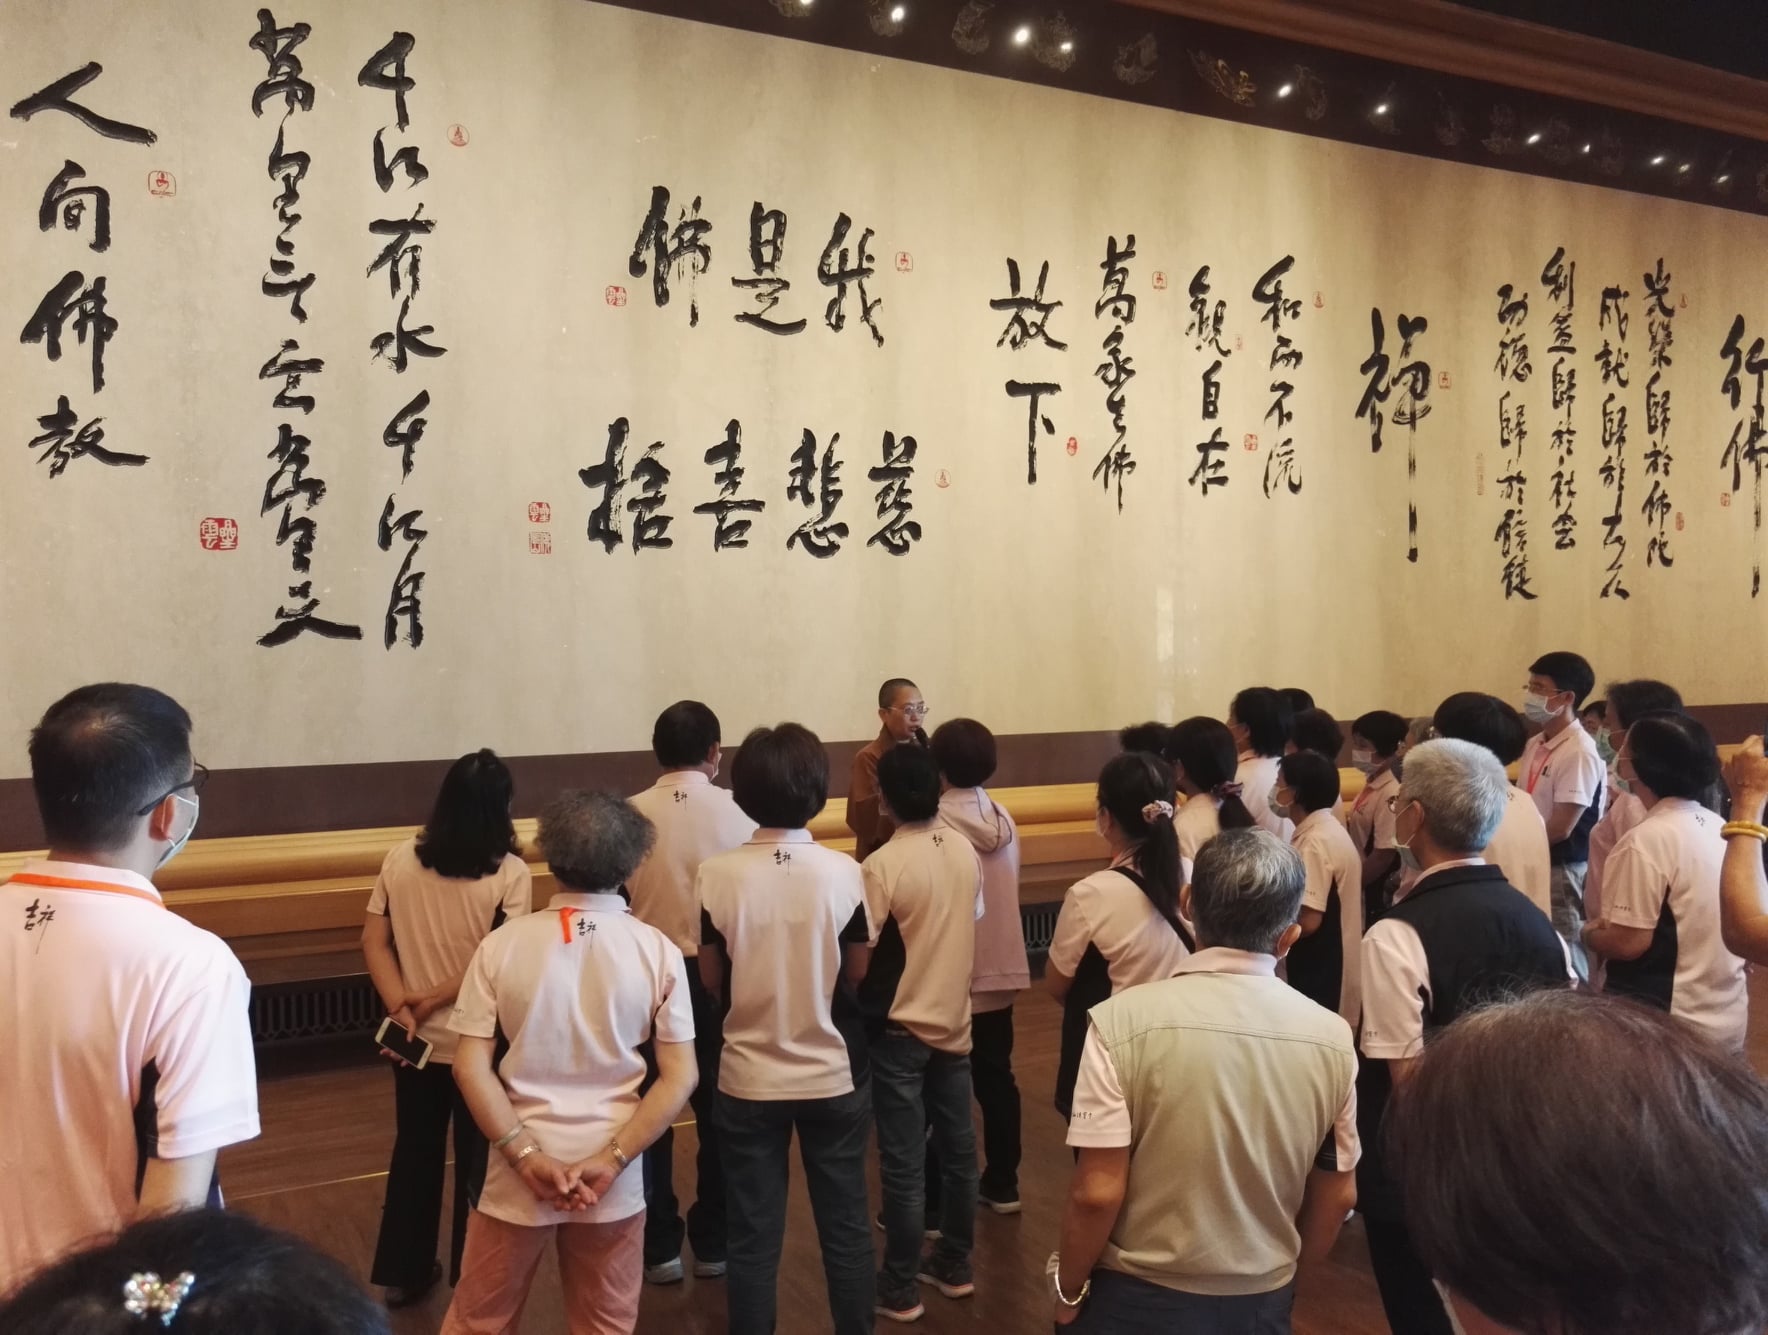 行佛
光榮歸於佛陀
成就歸於大众
利益歸於社会
功德歸於信徒
禪
和而不流
觀自在
萬象生佛
放下
我是佛
慈悲喜捨
千江有水千江月
萬里無雲萬里天
人间佛教
吉祥
吉祥
吉祥
吉祥
吉祥